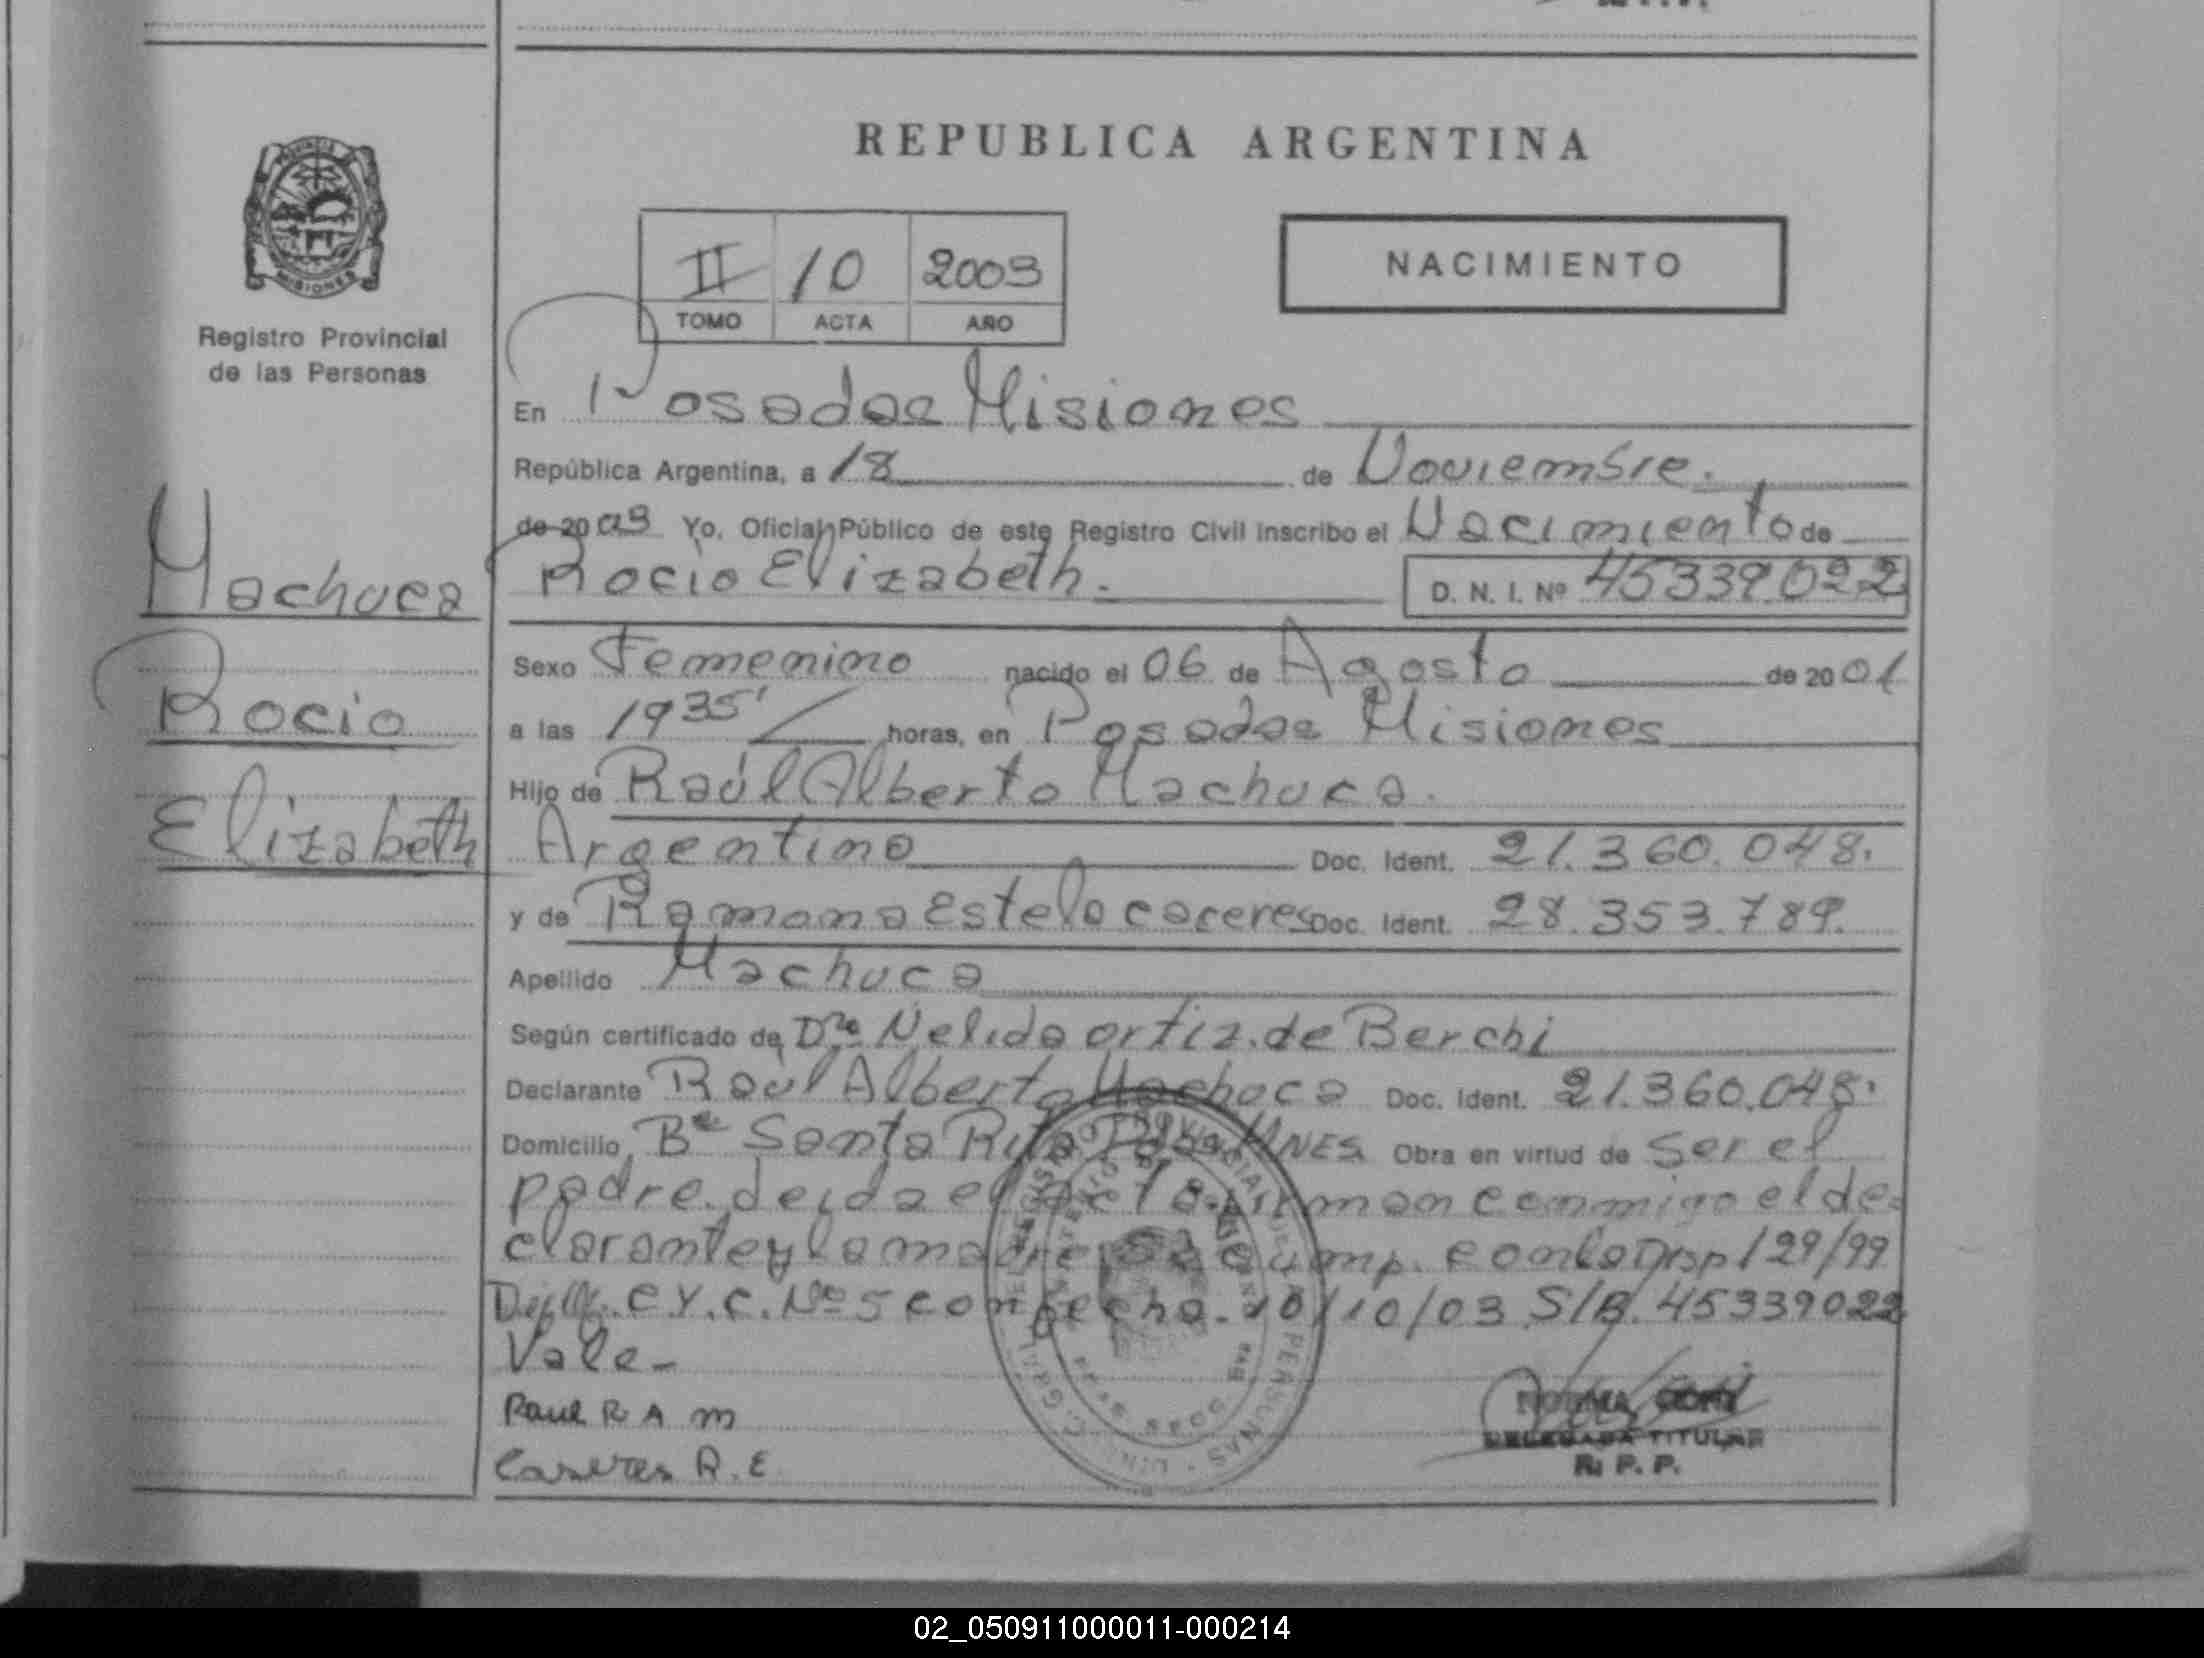 REPUBLICA ARGENTINA
PROVINCIA DE
MISIONES
Registro Provincial
de las Personas
II 10 2003
TOMO ACTA AÑO
NACIMIENTO
En Posadas Misiones
República Argentina, a 18 de Noviembre.
de 2003 Yo, Oficial Público de este Registro Civil inscribo el Nacimiento de
Rocio Elizabeth. D. N. I. Nº 45339022
Machuca
Rocio
Elizabeth
Sexo Femenino nacido el 06 de Agosto de 2001
a las 1935' horas, en Posadas Misiones
Hijo de Raúl Alberto Machuca.
Argentino Doc. Ident. 21.360.048.
y de Ramona Estela caceres Doc. Ident. 28.353.789.
Apellido Machuca
Según certificado de Dra Nelida ortiz. de Berchi
Declarante Raúl Alberto Machuca Doc. Ident. 21.360.048.
Domicilio Bº Santa Rita MNES Obra en virtud de ser el
padre. leida el acta. firman conmigo el de-
clarante y la madre. Se cump. con la Disp 129/99
C.Y.C. Nº 5 con fecha. 10/10/03 S/B. 45339022
Vale-
Raul R A M
Caseres R. E
DELEGADA TITULAR
R. P. P.
02_050911000011-000214